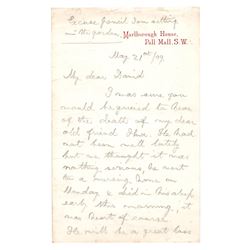 Excuse pencil I am sitting
in the garden.
Marlborough House,
Pall Mall, S.W.
May 21st/09
My dear David
I was sure you
would be grieved to hear
of the death of my dear
old friend
He had
not been well lately
but we thought it was
nothing serious, he went
to a nursing home on
Monday & died in his sleep
early this morning, it
was heart of course
He will be a great loss